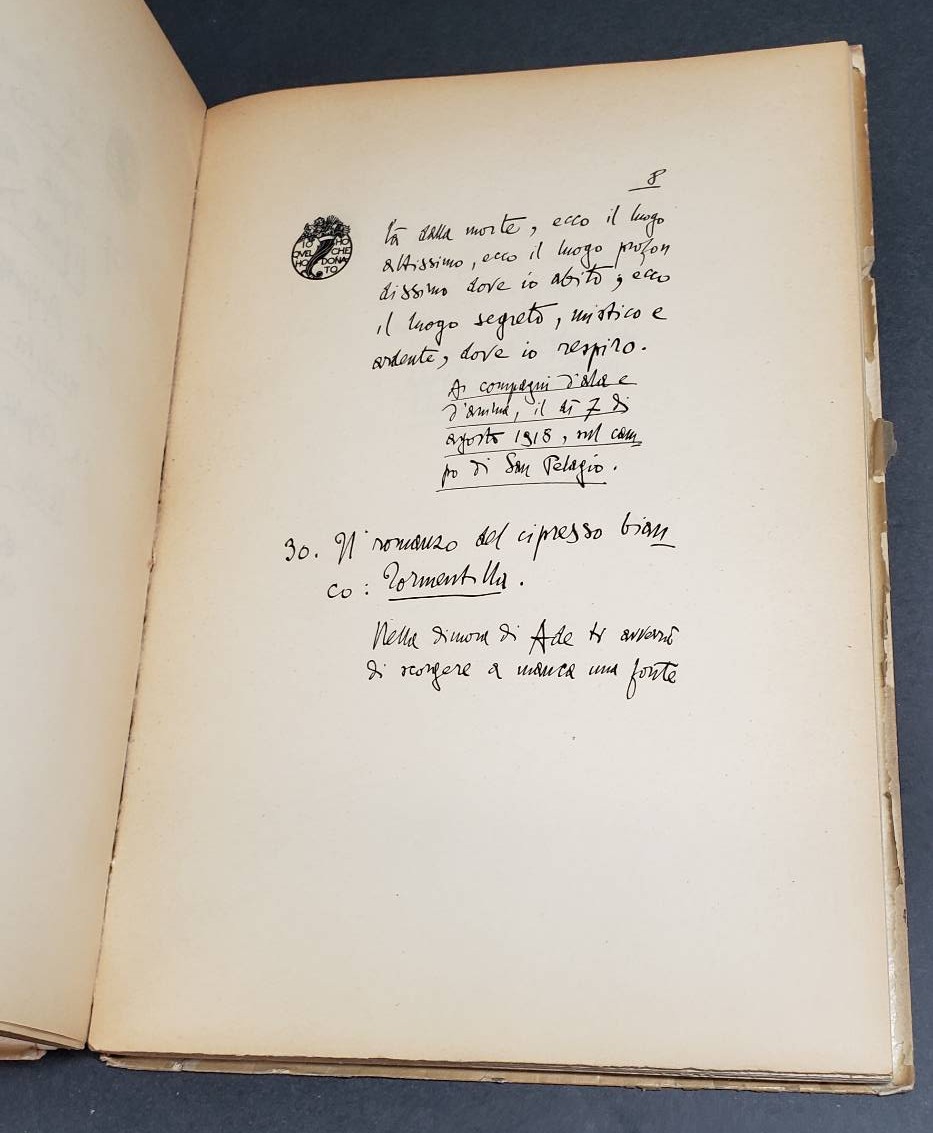 8
IO HO
QUEL CHE
HO DONA
TO
tà dalla morte, ecco il luogo
altissimo, ecco il luogo profon
dissimo dove io abito; ecco
il luogo segreto, mistico e
ardente, dove io respiro.
Ai compagni d'ala e
d'anima, il dì 7 di
agosto 1918, sul cam
po di San Pelagio.
30. Il romanzo del cipresso bian
co: Tormentilla.
Nella dimora di Ade ti avverrà
di scorgere a manca una fonte